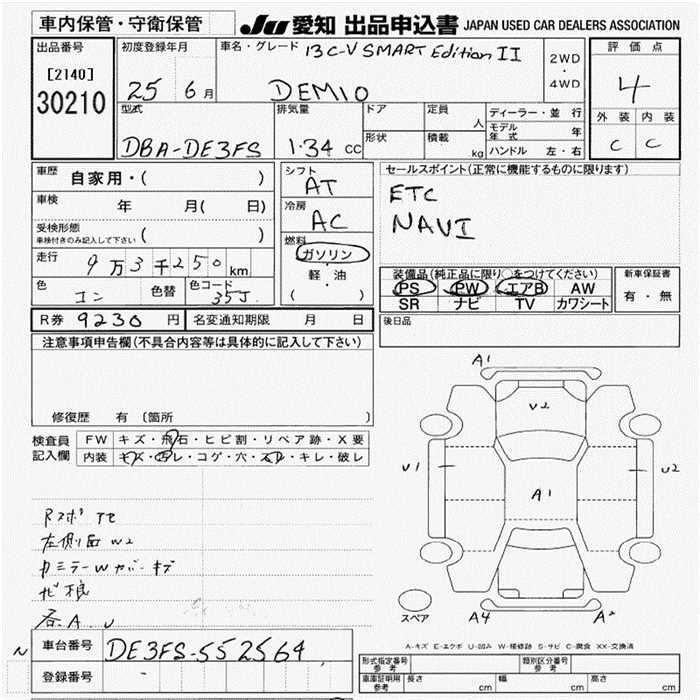 車内保管・守衛保管
JU 愛知 出品申込書 JAPAN USED CAR DEALERS ASSOCIATION
出品番号
[2140]
30210
初度登録年月
25 6 月
車名・グレード 13 C-V SMART Edition II
DEMIO
2WD
・
4WD
評価点
4
外装 内装
C C
型式
DBA-DE3FS
排気量
1.34 CC
ドア
形状
定員 人
積載 kg
ディーラー・並行
モデル年式 年
ハンドル 左・右
車歴 自家用・( )
車検 年 月( 日)
受検形態
車検付きのみ記入して下さい ( )
走行 9万3千250km
色 コン 色替 色コード 35J
シフト
AT
冷房
AC
燃料
ガソリン
軽・油
( )
セールスポイント(正常に機能するものに限ります)
ETC
NAVI
装備品(純正品に限り○をつけてください)
PS PW エアB AW
SR ナビ TV カワシート
新車保証書
有・無
R券 9230 円 名変通知期限 月 日
後日品
注意事項申告欄(不具合内容等は具体的に記入して下さい)
修復歴 有 (箇所
検査員
記入欄
FW キズ・飛石・ヒビ割・リペア跡・X要
内装 キズ・汚レ・コゲ・穴・スレ・キレ・破レ
左側面 W2
A1
V2
U1
U2
A1
A4
A2
スペア
A-キズ E-エクボ U-凹み W-補修跡 S-サビ C-腐食 XX-交換済
車台番号 DE3FS-552564
登録番号 -
型式指定番号
参考
類別区分番号
参考
車庫証明用
参考
長さ cm 幅 cm 高さ cm